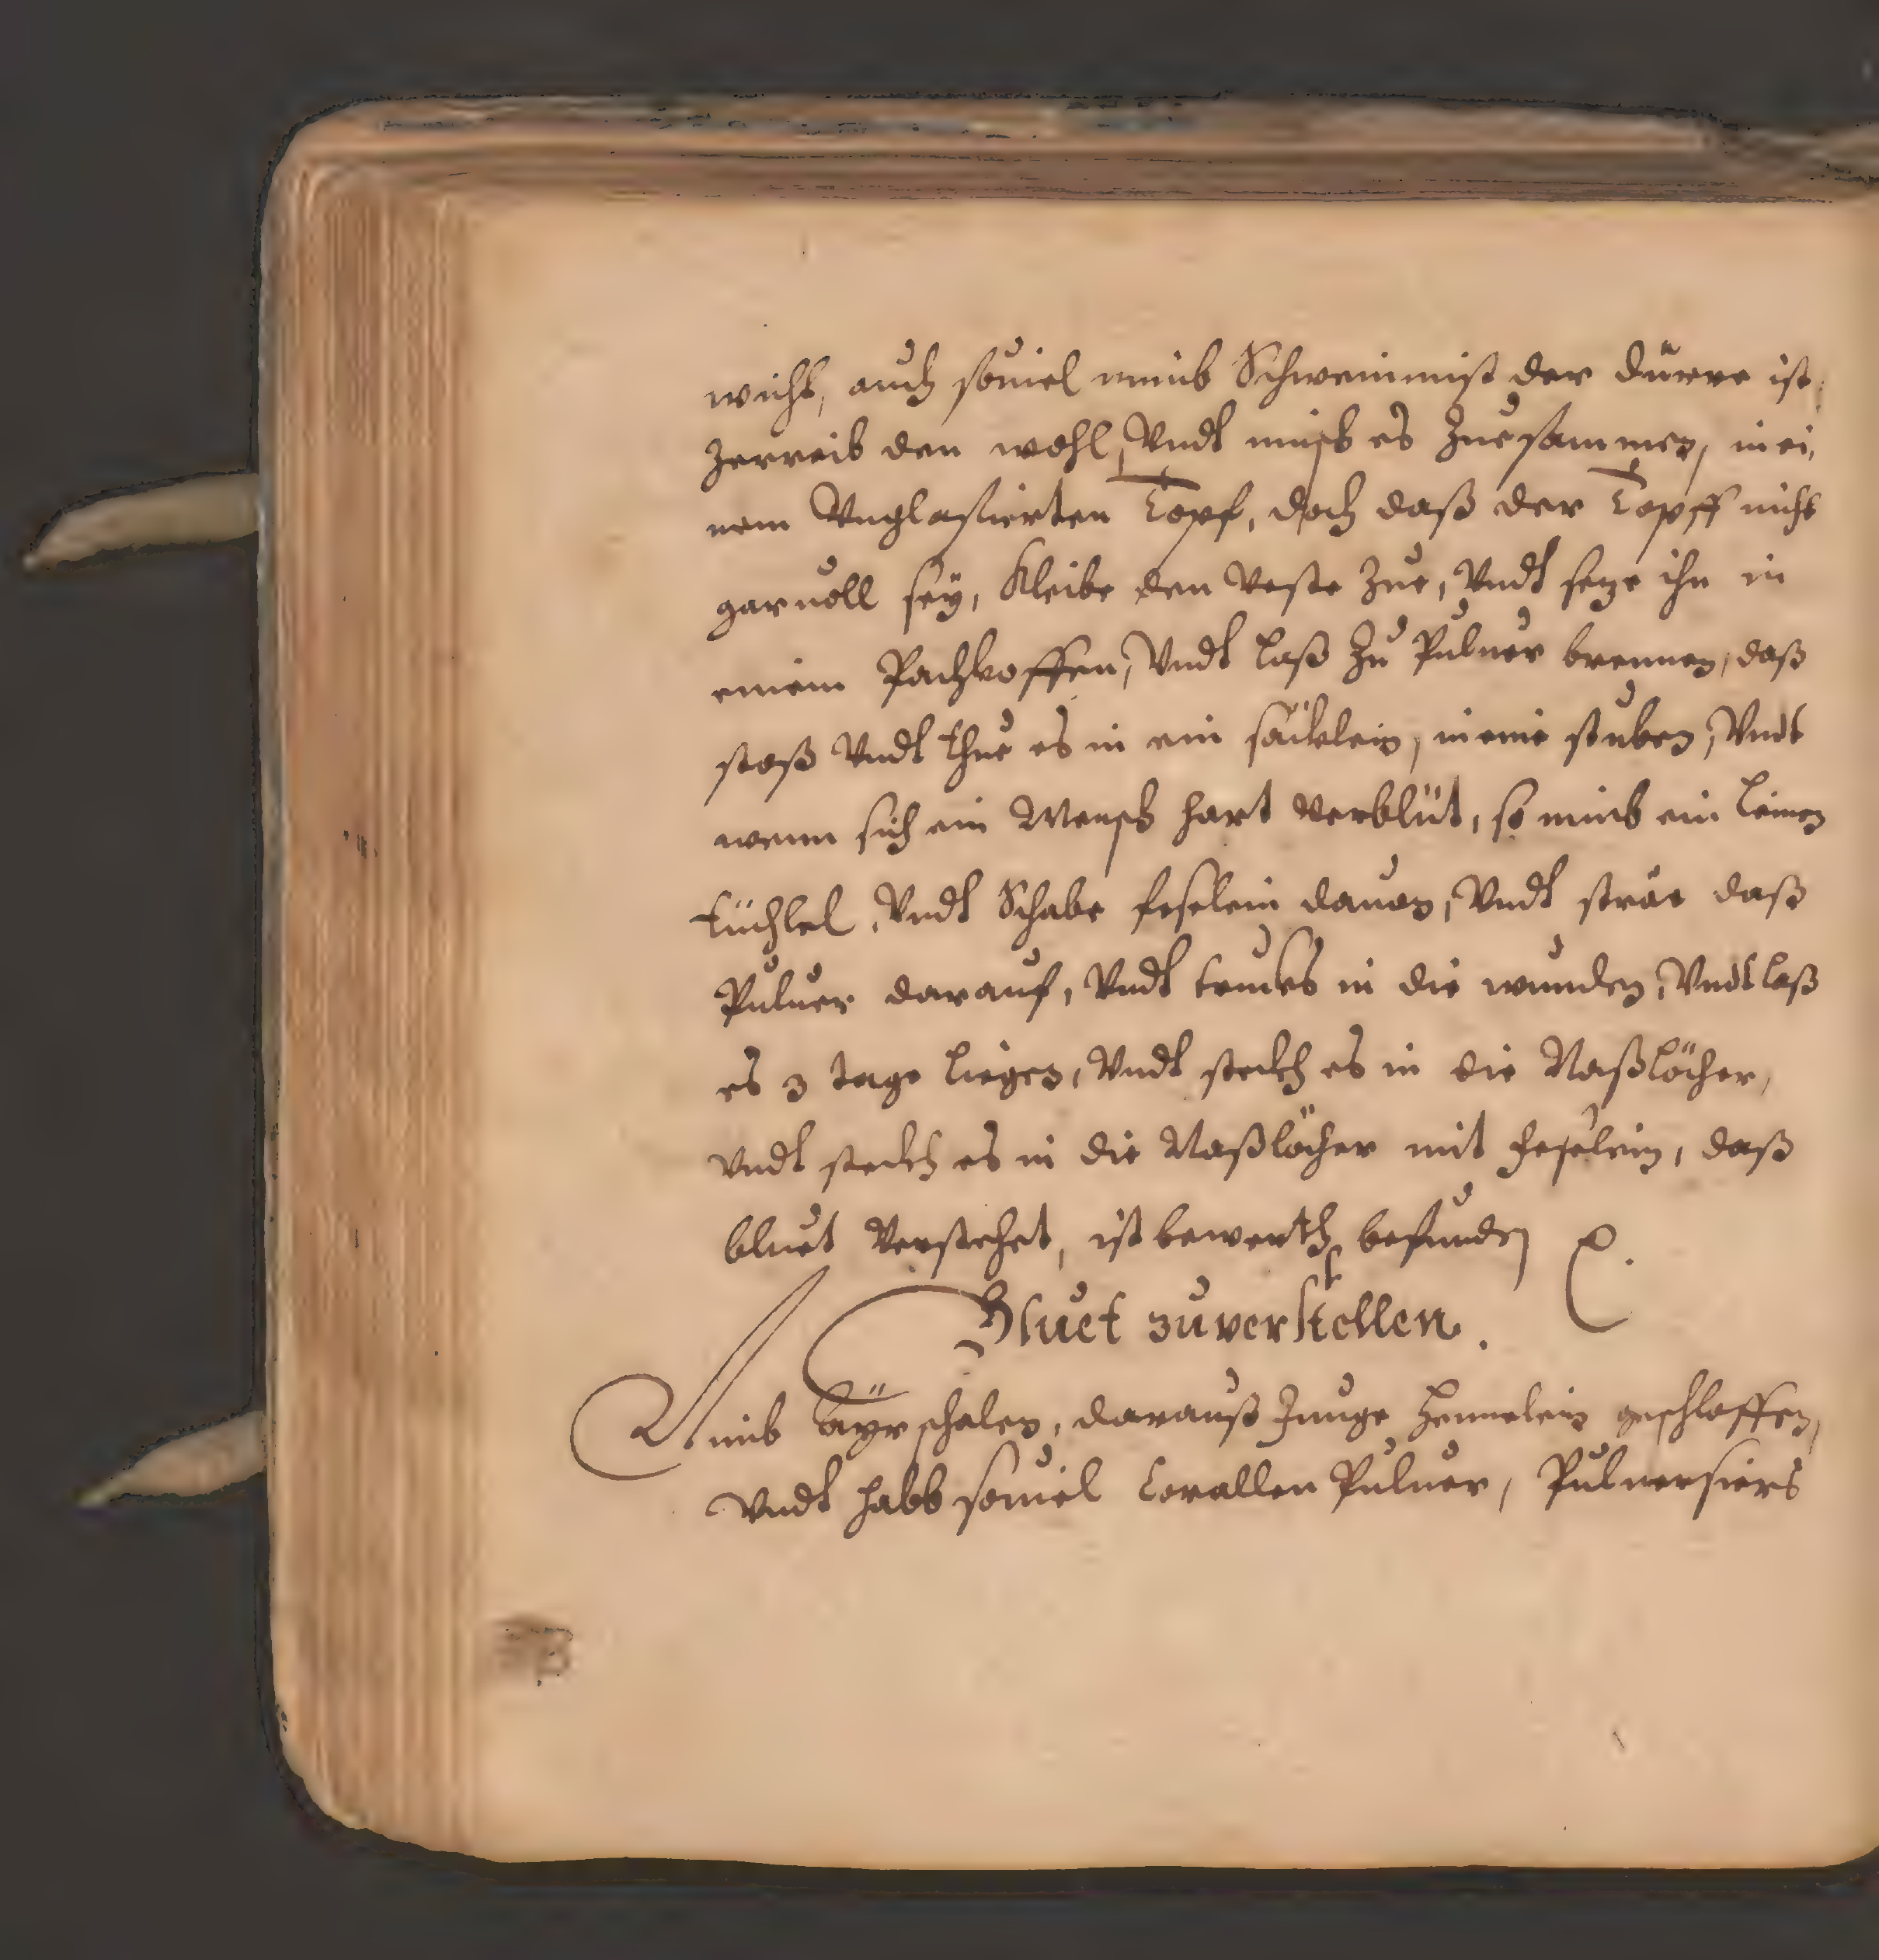 wicht, auch souiel nimb Schweinmist der dürre ist,
Zerreib den wohl, Vndt misch es Zuesammen, in ei,
nem Vnglasierten Topf, doch daß der Topff nicht
garuoll seÿ, Kleibe den Veste Zue, Vndt seze ihn in
einem Pachkoffen, Vndt laß Zu Puluer brennen, daß
stoß Vndt thue es in ein säcklein, in eine stuben, Vndt
wenn sich ein Mensch hart Verblüt, so nimb ein leinen
tüchlel, Vndt Schabe feselein dauon, Vndt sträe daß
Puluer darauf, Vndt trucks in die wunden, Vndt laß
es 3 tage liegen, Vndt steckh es in die Naßlöcher,
Vndt steckh es in die Naßlöcher mit feselein, daß
bluet Verstehet, ist bewerth befunden
Bluet zuverstellen.
Nimb Äyrschalen, darauß Junge Hennelein geschloffen,
Vndt habb souiel Corallen Puluer, Puluersiers